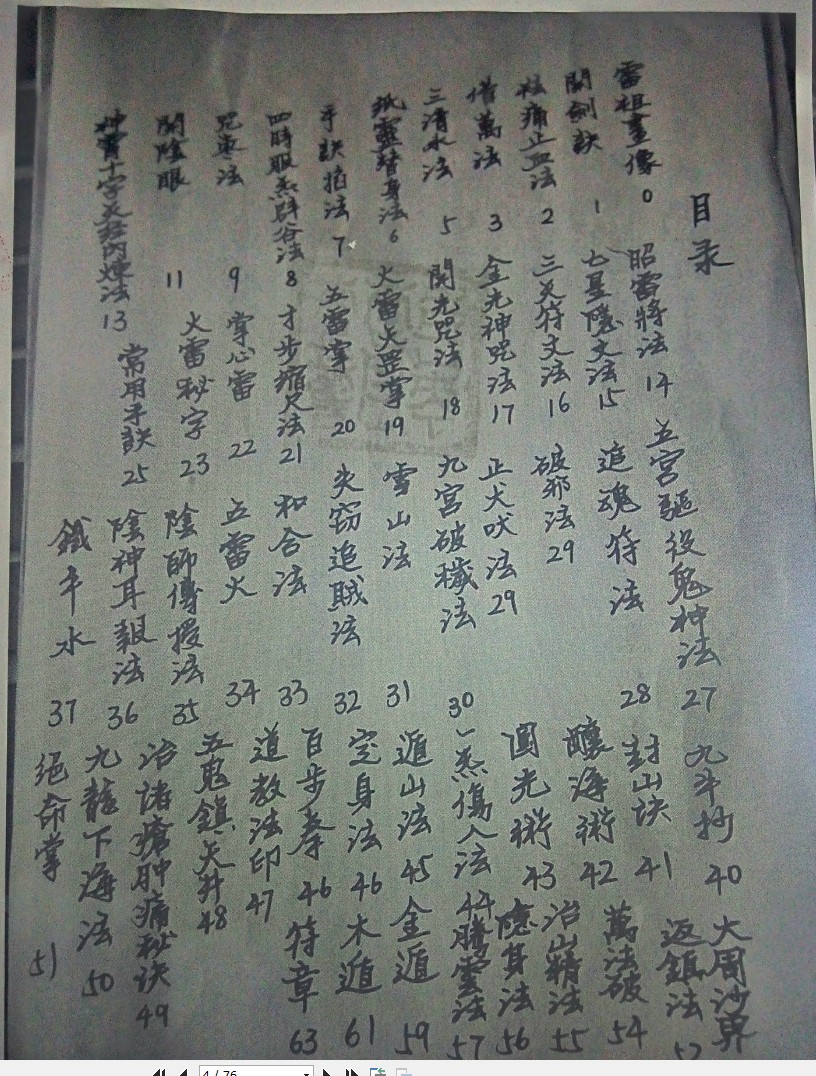 目录
雷祖畫像 0
開劍訣 1
祛痛止血法 2
借萬法 3
三清水法 5
紙靈替身法 6
手訣掐法 7
四時服炁辟谷法 8
咒棗法 9
開陰眼 11
神霄十字天經內煉法 13
昭雷將法 14
七星隱文法 15
三天符文法 16
金光神咒法 17
開光咒法 18
火雷火罡掌 19
五雷掌 20
寸步缩尺法 21
掌心雷 22
火雷秘字 23
常用手訣 25
五宫驅役鬼神法 27
追魂符法 28
破邪法 29
正犬吠法 29
九宮破穢法 30
雪山法 31
失窃追賊法 32
和合法 33
五雷火 34
陰師傳授法 35
陰神耳報法 36
鐵牛水 37
九牛抄 40
封山块 41
釀海術 42
圓光術 43
一炁傷人法 44
遁山法 45
定身法 46
百步拳 46
道教法印 47
五鬼鎮天井 48
治諸瘡肿痛秘诀 49
九龍下海法 50
绝命掌 51
大周沙界
返鎮法 52
萬法破 54
治山精法 55
隱身法 56
騰雲法 57
金遁 59
木遁 61
符章 63
4 / 76